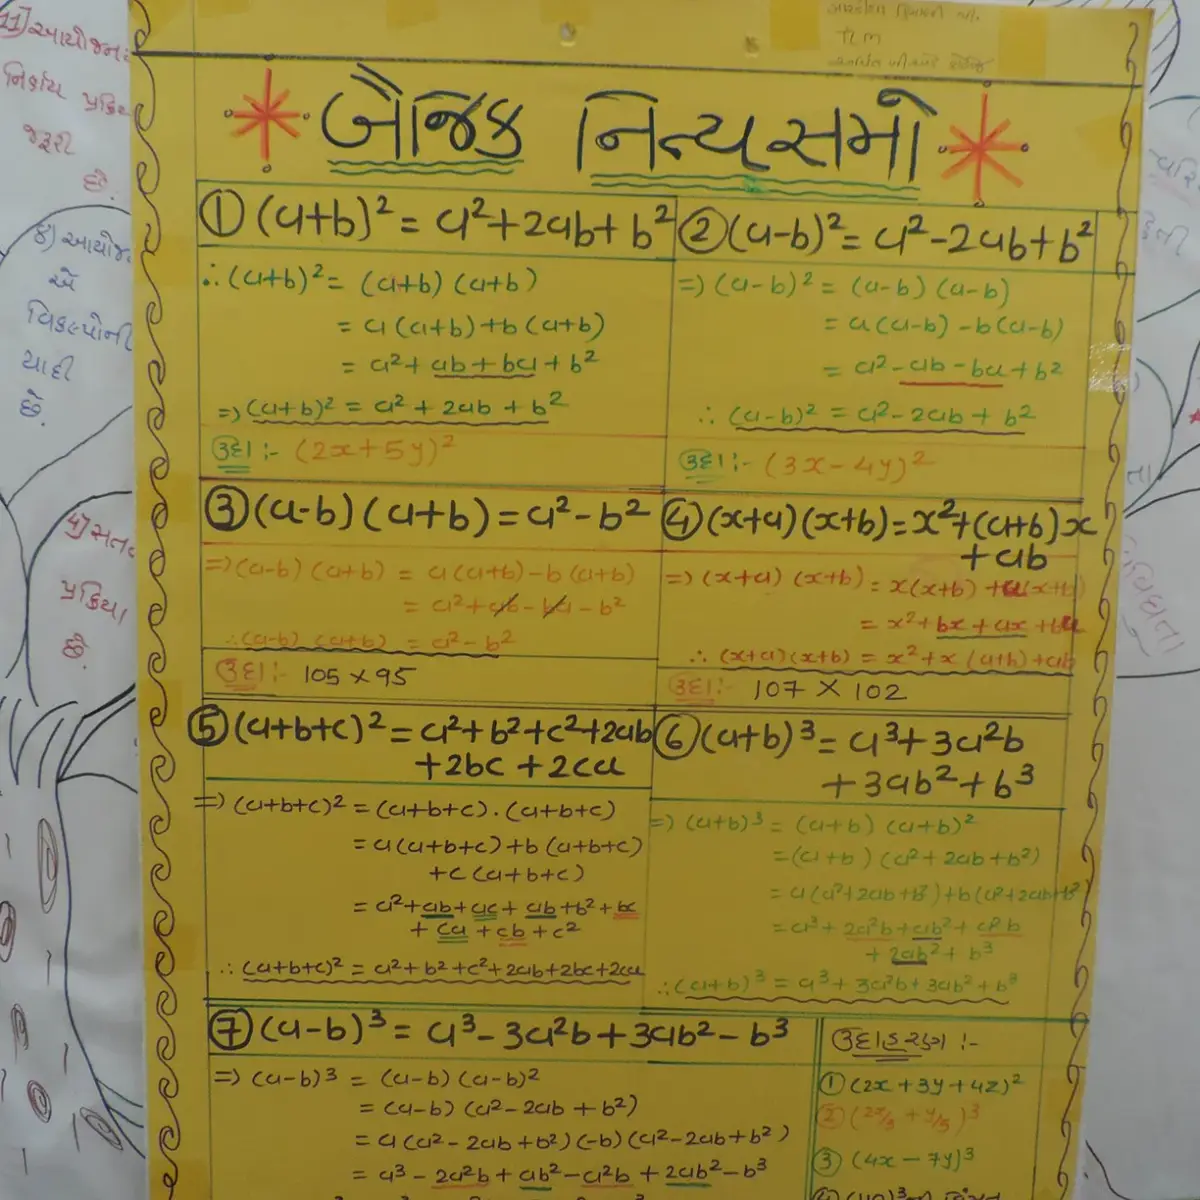 11] આયોજન
નિર્ણય પ્રક્રિયા
જરૂરી
છે.
૪) આયોજન
એ
વિકલ્પોની
યાદી
છે.
પ્રક્રિયા
છે.
TLM
બૈજિક નિત્યસમો
① (a+b)² = a²+2ab+b²
∴ (a+b)² = (a+b) (a+b)
= a (a+b) + b (a+b)
= a² + ab + ba + b²
⇒ (a+b)² = a² + 2ab + b²
ઉદા :- (2x+5y)²
② (a-b)² = a²-2ab+b²
⇒ (a-b)² = (a-b) (a-b)
= a (a-b) - b (a-b)
= a² - ab - ba + b²
∴ (a-b)² = a² - 2ab + b²
ઉદા :- (3x-4y)²
③ (a-b) (a+b) = a²-b²
⇒ (a-b) (a+b) = a (a+b) - b (a+b)
= a² + ab - ba - b²
∴ (a-b) (a+b) = a² - b²
ઉદા :- 105 × 95
④ (x+a) (x+b) = x²+(a+b)x
+ab
⇒ (x+a) (x+b) = x(x+b) + a(x+b)
= x² + bx + ax + ba
∴ (x+a) (x+b) = x² + x (a+b) + ab
ઉદા :- 107 × 102
⑤ (a+b+c)² = a²+b²+c²+2ab
+2bc +2ca
⇒ (a+b+c)² = (a+b+c) . (a+b+c)
= a (a+b+c) + b (a+b+c)
+c (a+b+c)
= a²+ab+ac+ab+b²+bc
+ ca + cb + c²
∴ (a+b+c)² = a²+b²+c²+2ab+2bc+2ca
⑥ (a+b)³ = a³+3a²b
+3ab²+b³
⇒ (a+b)³ = (a+b) (a+b)²
= (a+b) (a²+2ab+b²)
= a (a²+2ab+b²)+b(a²+2ab+b²)
= a³ + 2a²b + ab² + a²b
+ 2ab² + b³
∴ (a+b)³ = a³ + 3a²b + 3ab² + b³
⑦ (a-b)³ = a³-3a²b+3ab²-b³
⇒ (a-b)³ = (a-b) (a-b)²
= (a-b) (a²-2ab+b²)
= a (a²-2ab+b²)(-b) (a²-2ab+b²)
= a³ - 2a²b + ab² - a²b + 2ab² - b³
ઉદાહરણ :-
① (2x + 3y + 4z)²
② (2x/3 + y/5)³
③ (4x - 7y)³